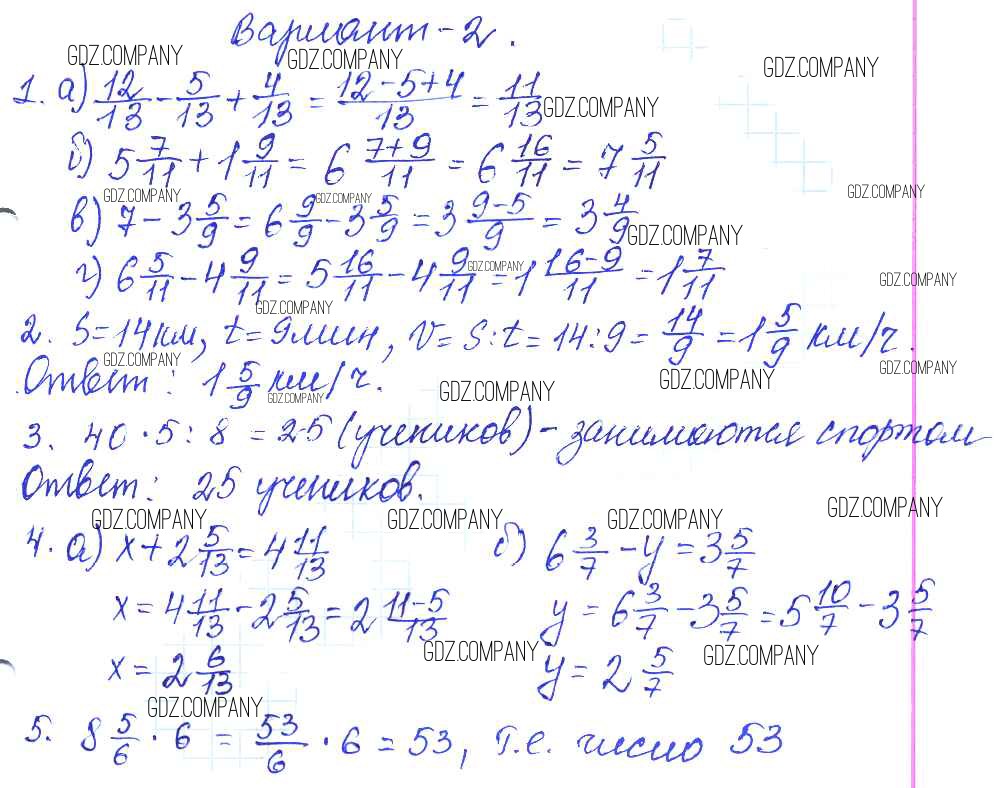 Вариант-2.
GDZ.COMPANY GDZ.COMPANY GDZ.COMPANY
1. а) 12/13 - 5/13 + 4/13 = (12-5+4)/13 = 11/13 GDZ.COMPANY
б) 5 7/11 + 1 9/11 = 6 (7+9)/11 = 6 16/11 = 7 5/11
GDZ.COMPANY GDZ.COMPANY GDZ.COMPANY
в) 7 - 3 5/9 = 6 9/9 - 3 5/9 = 3 (9-5)/9 = 3 4/9 GDZ.COMPANY
г) 6 5/11 - 4 9/11 = 5 16/11 - 4 9/11 = 1 (16-9)/11 = 1 7/11
GDZ.COMPANY GDZ.COMPANY GDZ.COMPANY
2. S=14км, t=9мин, V=S:t=14:9= 14/9 = 1 5/9 км/ч.
GDZ.COMPANY GDZ.COMPANY GDZ.COMPANY
Ответ: 1 5/9 км/ч.
GDZ.COMPANY GDZ.COMPANY
3. 40·5:8=25 (учеников) - занимаются спортом
Ответ: 25 учеников.
GDZ.COMPANY GDZ.COMPANY GDZ.COMPANY GDZ.COMPANY
4. а) x + 2 5/13 = 4 11/13
x = 4 11/13 - 2 5/13 = 2 (11-5)/13
x = 2 6/13
б) 6 3/7 - y = 3 5/7
y = 6 3/7 - 3 5/7 = 5 10/7 - 3 5/7
y = 2 5/7
GDZ.COMPANY GDZ.COMPANY
GDZ.COMPANY
5. 8 5/6 · 6 = 53/6 · 6 = 53, т.е. число 53